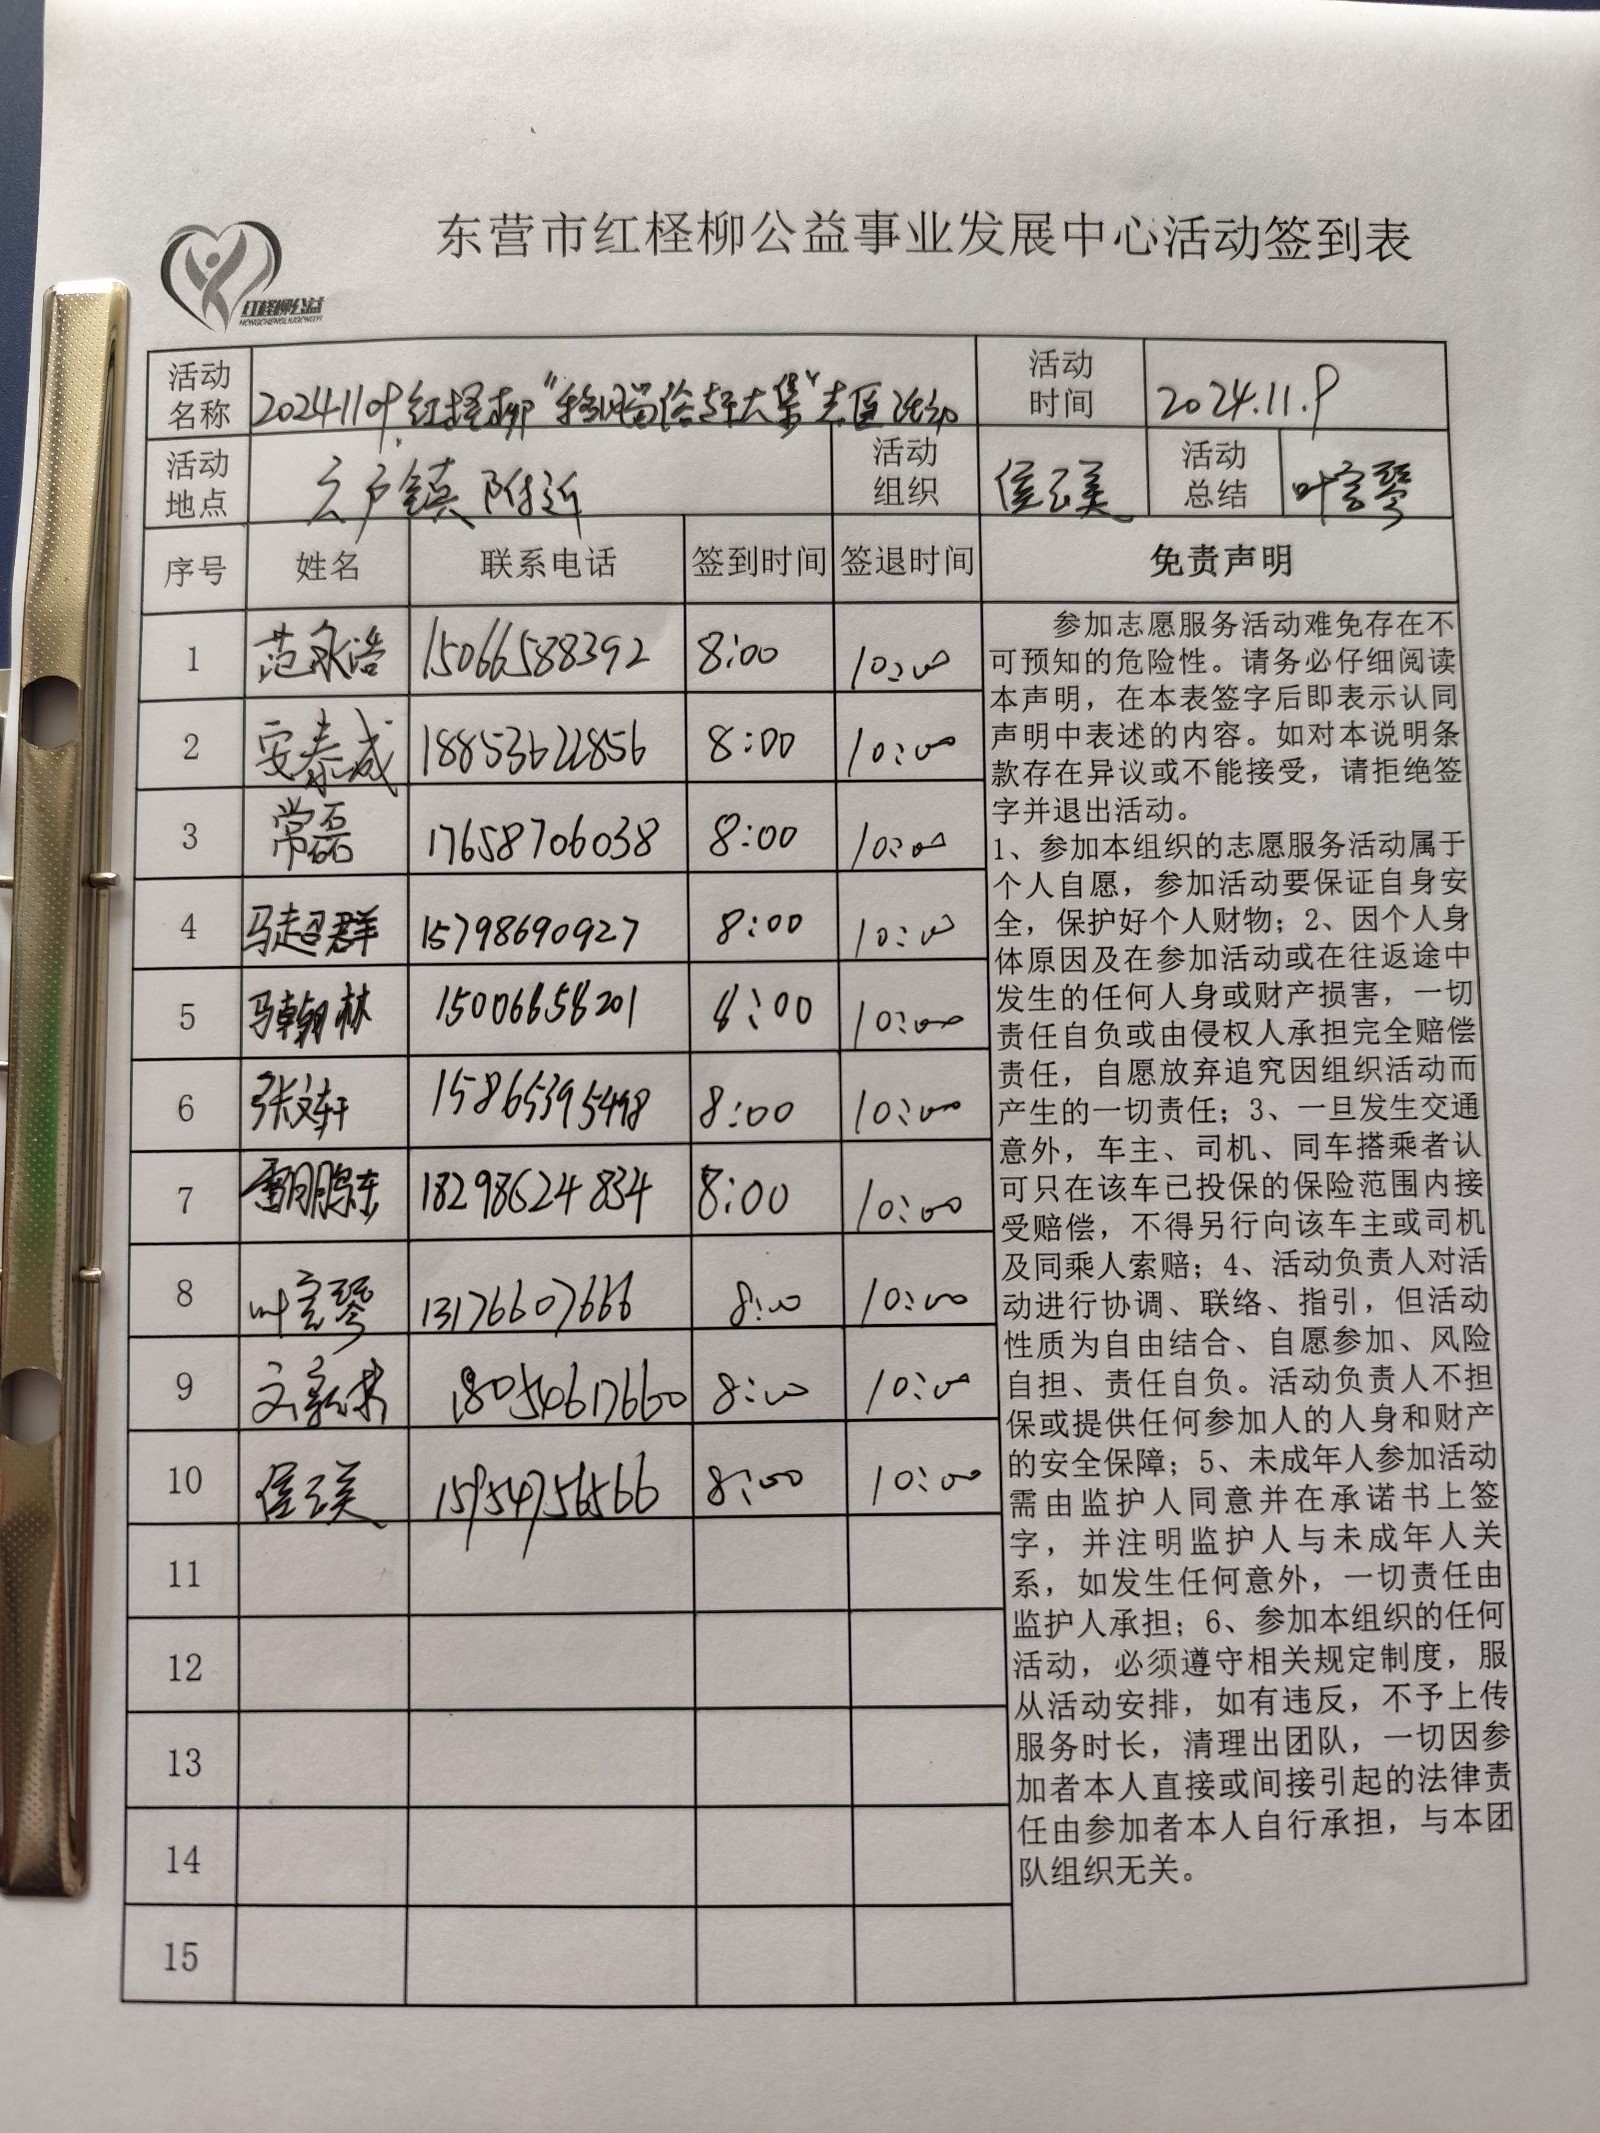 东营市红柽柳公益事业发展中心活动签到表
红柽柳公益
HONGCHENGLIUGONGYI
活动名称 20241109红柽柳 大集 活动 活动时间 2024.11.9
活动地点 户镇附近 活动组织 侯玉美 活动总结 叶言琴
序号 姓名 联系电话 签到时间 签退时间 免责声明
1 范永浩 15066588392 8:00 10:00
2 安泰成 18853622856 8:00 10:00
3 常磊 17658706038 8:00 10:00
4 马超群 15798690927 8:00 10:00
5 马翰林 15006658201 8:00 10:00
6 张文轩 15865395498 8:00 10:00
7 雷鹏东 18298624834 8:00 10:00
8 叶言琴 13176607666 8:00 10:00
9 18050617660 8:00 10:00
10 侯玉美 15954756566 8:00 10:00
11
12
13
14
15
参加志愿服务活动难免存在不
可预知的危险性。请务必仔细阅读
本声明，在本表签字后即表示认同
声明中表述的内容。如对本说明条
款存在异议或不能接受，请拒绝签
字并退出活动。
1、参加本组织的志愿服务活动属于
个人自愿，参加活动要保证自身安
全，保护好个人财物；2、因个人身
体原因及在参加活动或在往返途中
发生的任何人身或财产损害，一切
责任自负或由侵权人承担完全赔偿
责任，自愿放弃追究因组织活动而
产生的一切责任；3、一旦发生交通
意外，车主、司机、同车搭乘者认
可只在该车已投保的保险范围内接
受赔偿，不得另行向该车主或司机
及同乘人索赔；4、活动负责人对活
动进行协调、联络、指引，但活动
性质为自由结合、自愿参加、风险
自担、责任自负。活动负责人不担
保或提供任何参加人的人身和财产
的安全保障；5、未成年人参加活动
需由监护人同意并在承诺书上签
字，并注明监护人与未成年人关
系，如发生任何意外，一切责任由
监护人承担；6、参加本组织的任何
活动，必须遵守相关规定制度，服
从活动安排，如有违反，不予上传
服务时长，清理出团队，一切因参
加者本人直接或间接引起的法律责
任由参加者本人自行承担，与本团
队组织无关。